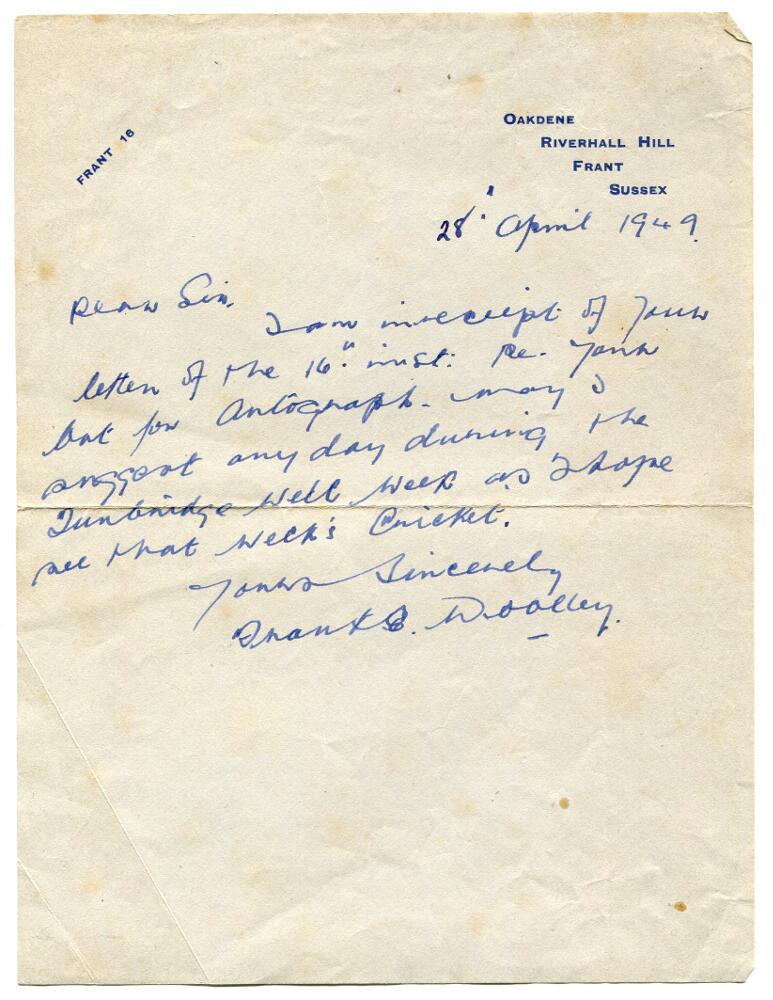 FRANT 16
OAKDENE
RIVERHALL HILL
FRANT
SUSSEX
28' April 1949.
Dear Sir,
I am in receipt of your
letter of the 16" inst: Re. your
bat for Autograph. may I
suggest any day during the
Tunbridge Well Week as I hope
see that Week's Cricket.
Yours Sincerely
Frank E. Woolley.